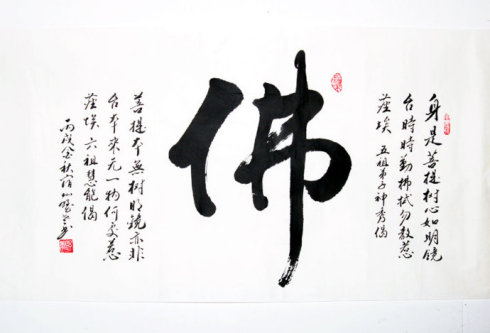 身是菩提树心如明镜
台時時勤拂拭勿教惹
塵埃 五祖弟子神秀偈
佛
菩提本無树明镜亦非
台本来无一物何处惹
塵埃 六祖慧能偈
丙戌金秋